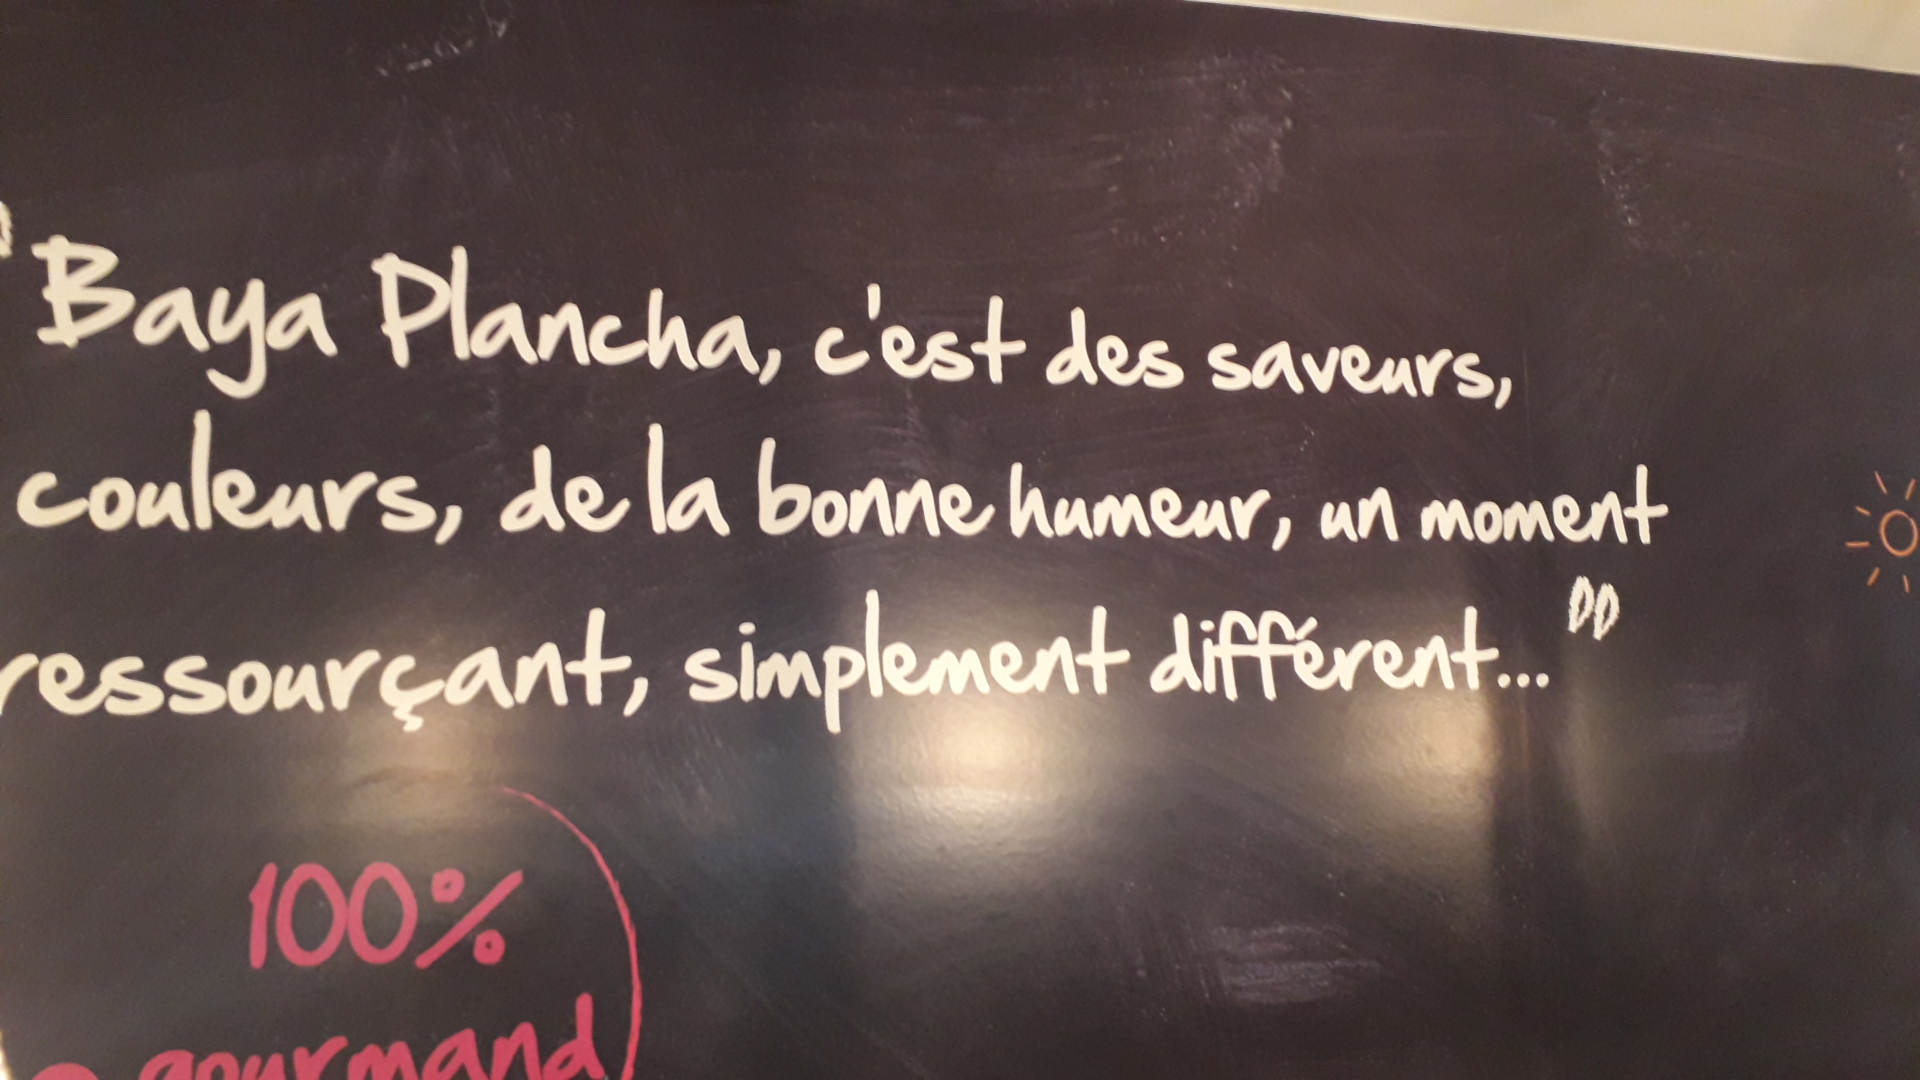 "Baya Plancha, c'est des saveurs,
couleurs, de la bonne humeur, un moment
ressourçant, simplement différent..."
100%
gourmand